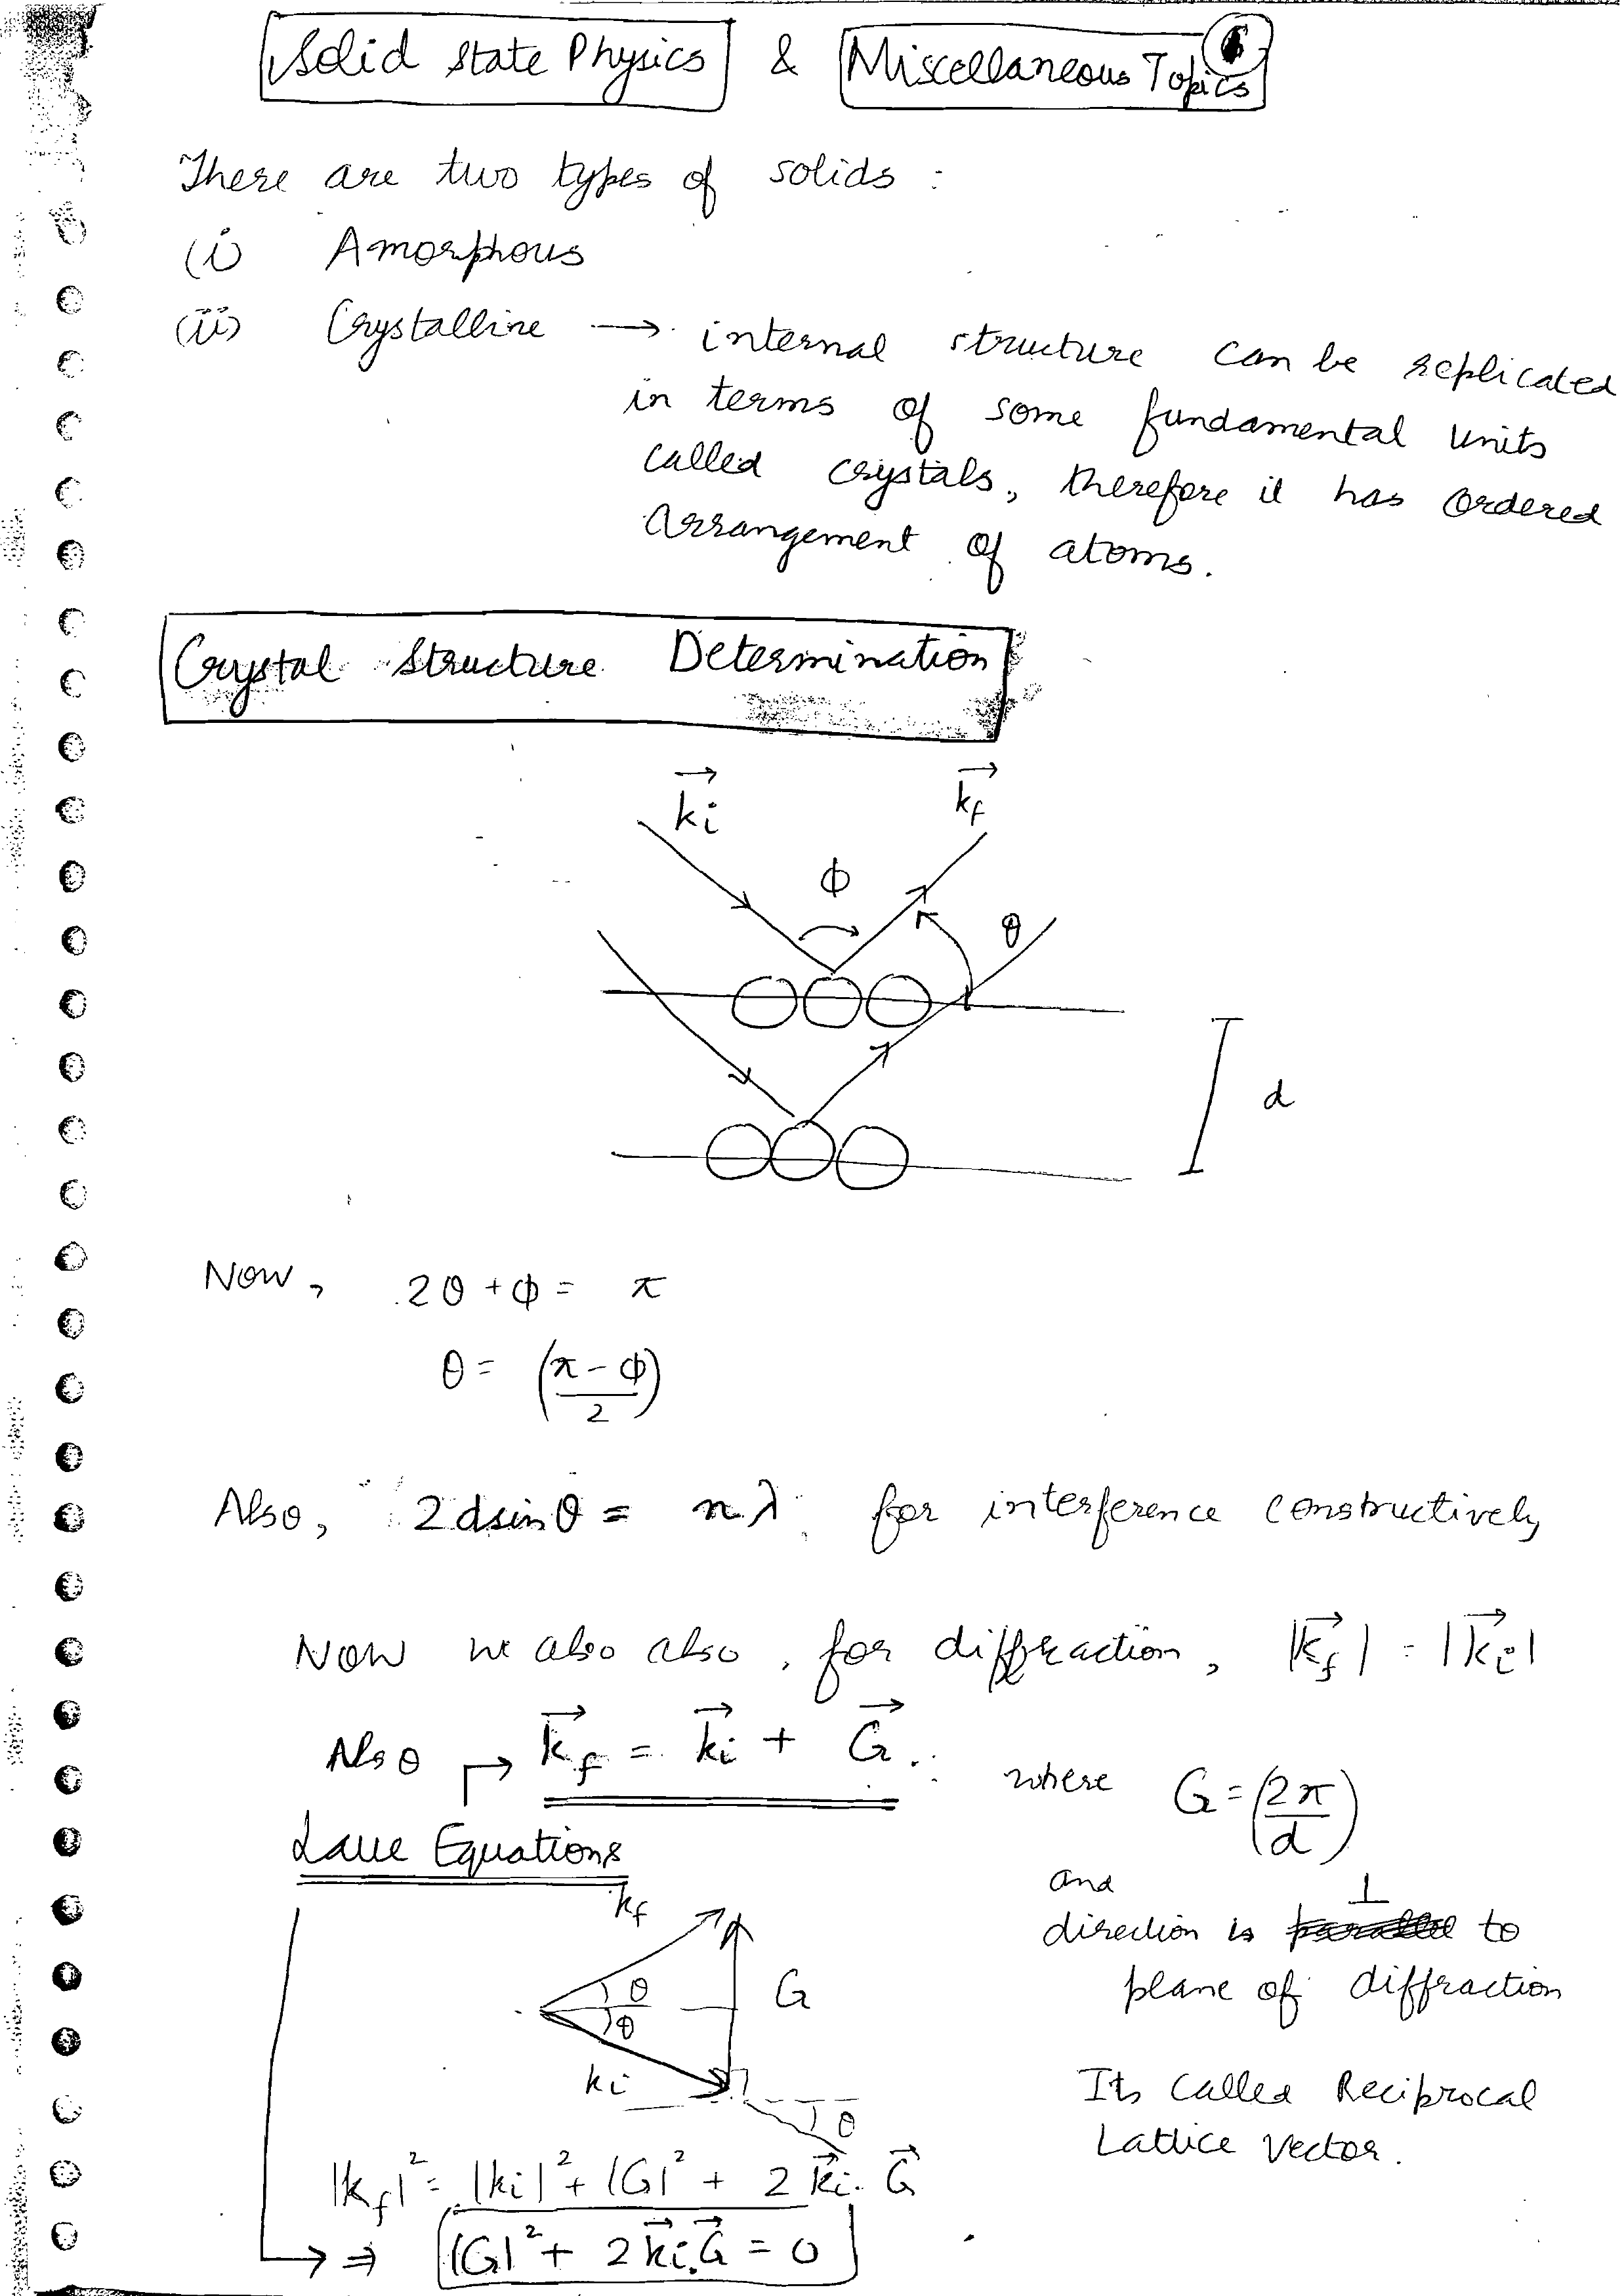 Solid State Physics & Miscellaneous Topics
There are two types of solids :
(i) Amorphous
(ii) Crystalline → internal structure can be replicated
in terms of some fundamental units
called crystals, therefore it has ordered
arrangement of atoms.
Crystal Structure Determination
→ki →kf
ϕ
θ
d
Now, 2θ + ϕ = π
θ = (π - ϕ / 2)
Also, 2dsinθ = nλ for interference constructively
Now we also also, for diffraction, |→kf| = |→ki|
Also → →kf = →ki + →G. where G = (2π / d)
Laue Equations
and
direction is ⊥ to
plane of diffraction
kf
θ
G
θ
ki
θ
Its called Reciprocal
Lattice Vector.
|kf|² = |ki|² + |G|² + 2 →ki. →G
⇒ |G|² + 2→ki.→G = 0